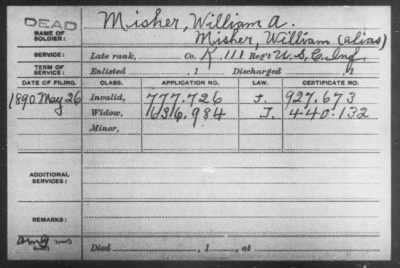 DEAD
NAME OF SOLDIER:
Misher, William A.
Misher, William (alias)
SERVICE:
Late rank, Co. K, 111 Reg't U.S.C. Inf.
TERM OF SERVICE:
Enlisted , 1 Discharged , 1
DATE OF FILING. CLASS. APPLICATION NO. LAW. CERTIFICATE NO.
1890 May 26 Invalid, 777.726 J. 927.673
Widow, 636.984 J. 440.132
Minor,
ADDITIONAL SERVICES:
REMARKS:
Died , 1 , at